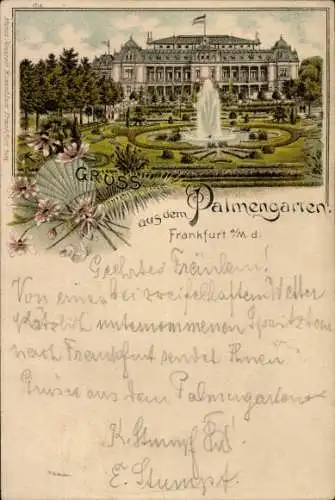 GRUSS
aus dem Palmengarten!
Frankfurt a/M. d.
Geehrtes Fräulein!
Von einer bei zweifelhaftem Wetter
kürzlich unternommenen
nach Frankfurt sendet Ihnen
Grüsse aus dem Palmengarten
K. Stumpf
E. Stumpf.